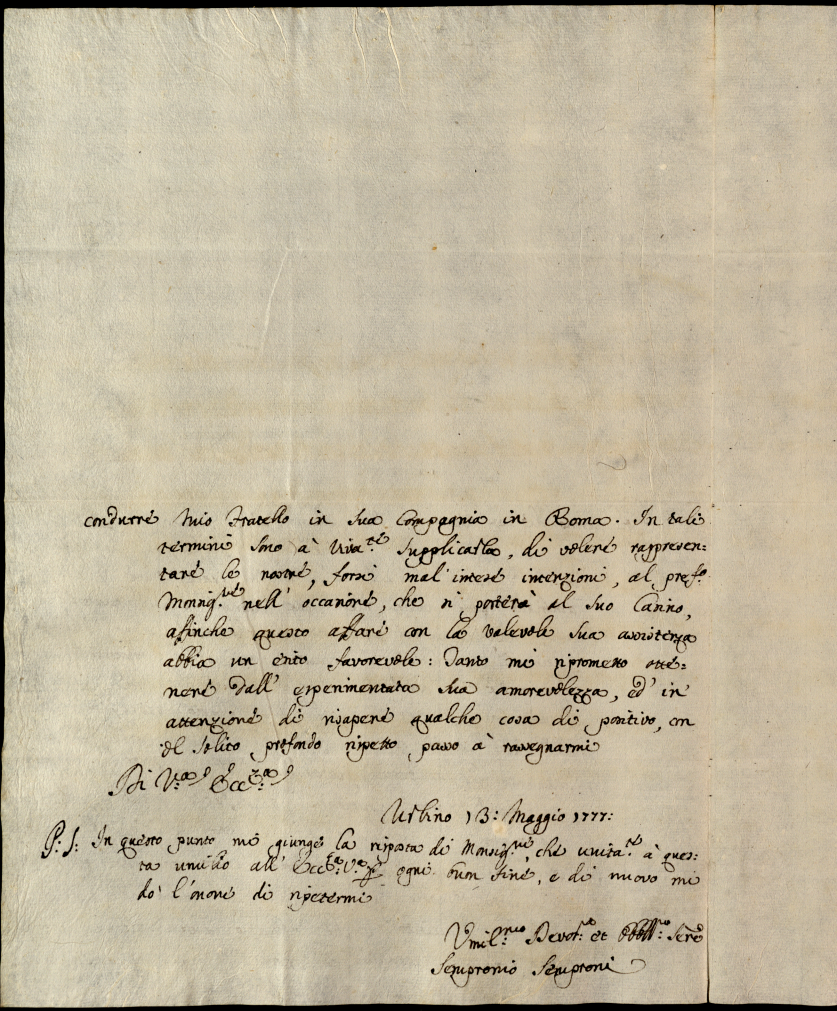 condurre mio Fratello in sua Compagnia in Roma. In tali
termini sono à viva.te supplicarla, di volere rappresen:
tare le nostre, forsi mal'intese intenzioni, al pref.o
Monsig.re nell'occasione, che si porterà al suo
affinche questo affare con la valevole sua assistenza
abbia un esito favorevole: Tanto mi riprometto otte:
nere dall'esperimentata sua amorevolezza, ed'in
attenzione di risapere qualche cosa di positivo, con
il solito profondo rispetto, passo à rassegnarmi
Di V.a Ecc.za
Urbino 13: Maggio 1777:
P: S: In questo punto mi giunge la risposta di Monsig.re, che unita.te à ques:
ta umilio all'Ecc.za V.a p ogni buon fine, e di nuovo mi
dò l'onore di ripetermi
Umil.mo Devot.mo et Obbl.mo Sere
Sempronio Semproni